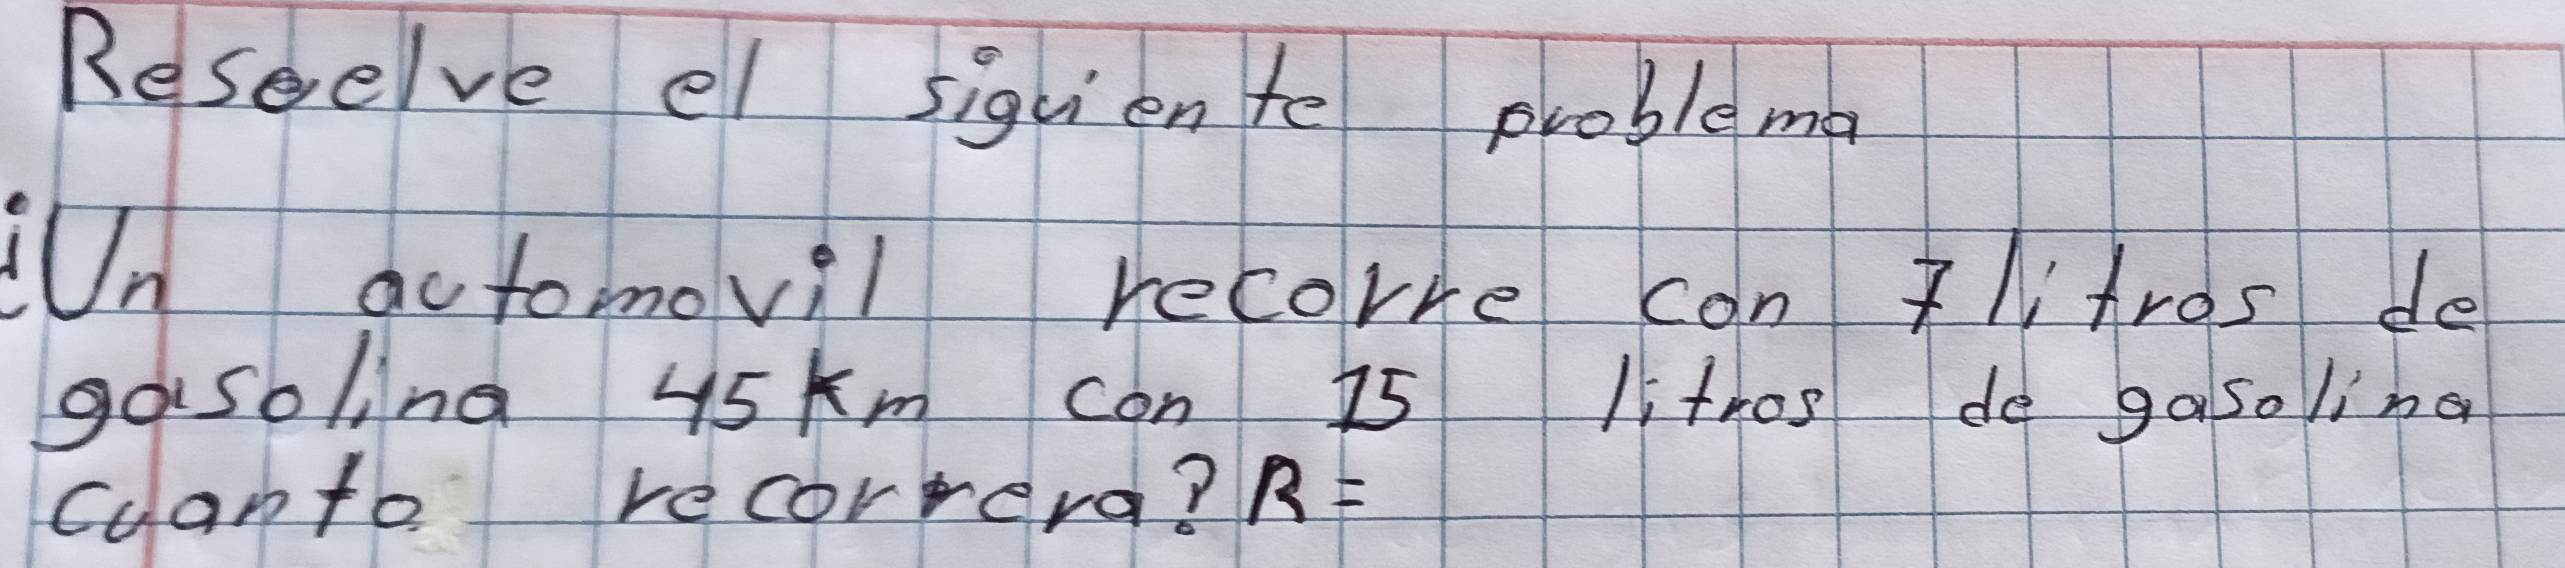 Reseelve el siguiente problema
¿Un automovil recorre con 7 litros de
gasolina 45 Km con 15 litros de gasolina
cuanto recorrera? R=